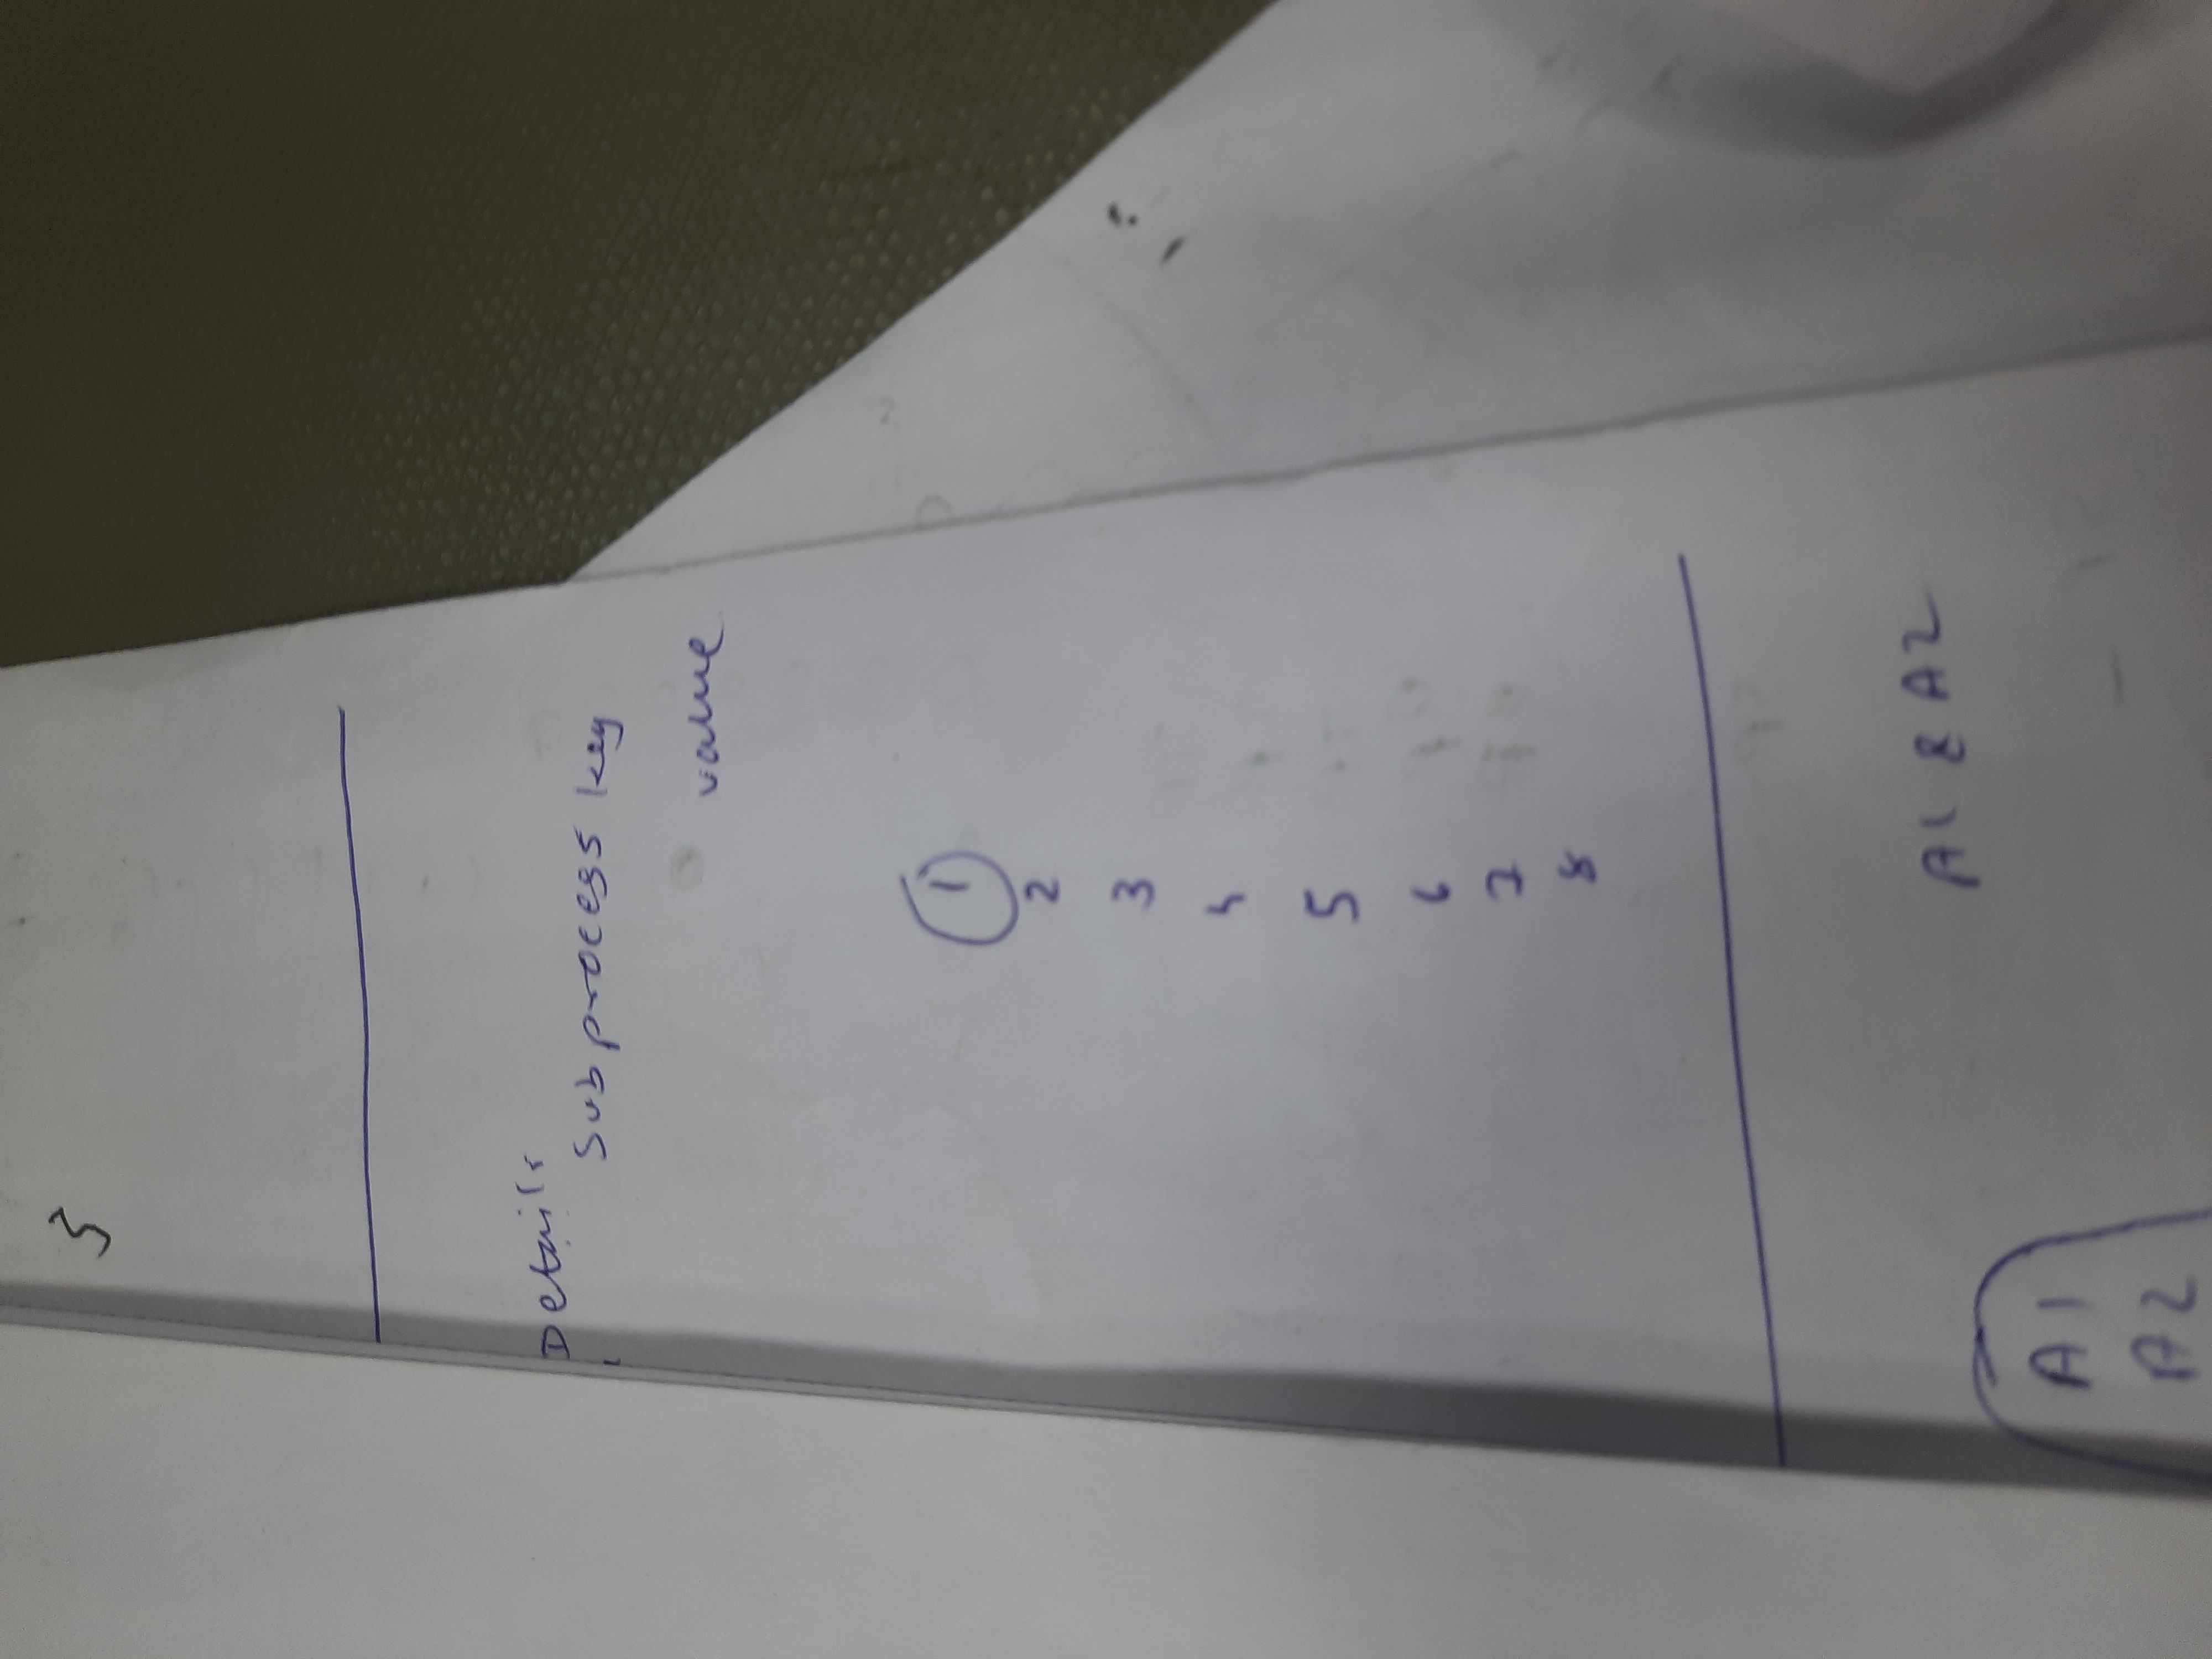 3
Details
Subprocess key
value
1
2
3
4
5
6
7
8
A1 & A2
A1
A2